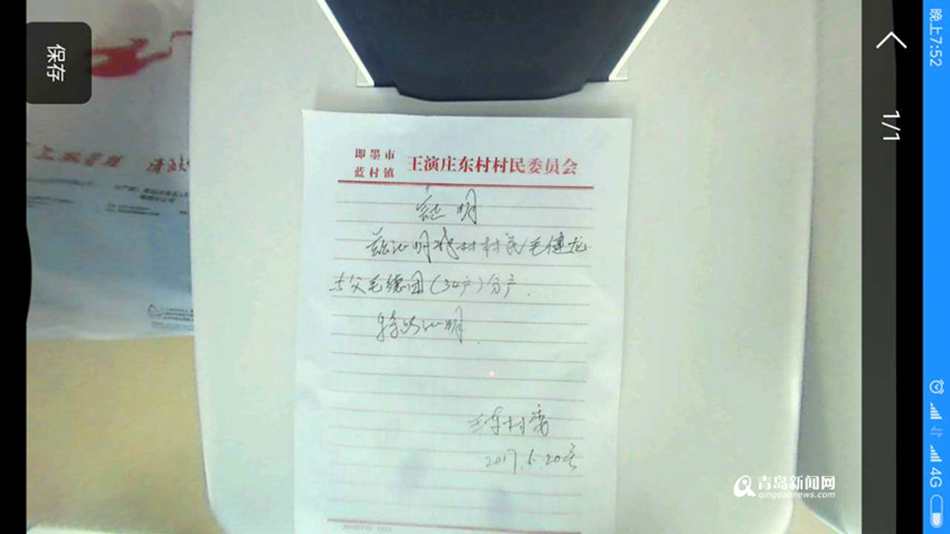 保存
晚上7:52
1/1
4G
即墨市
蓝村镇
王演庄东村村民委员会
证明
兹证明我村村民毛健龙
与父毛德团(34户)分户.
特此证明.
王东村委
2017.6.20号
青岛新闻网
qingdaonews.com